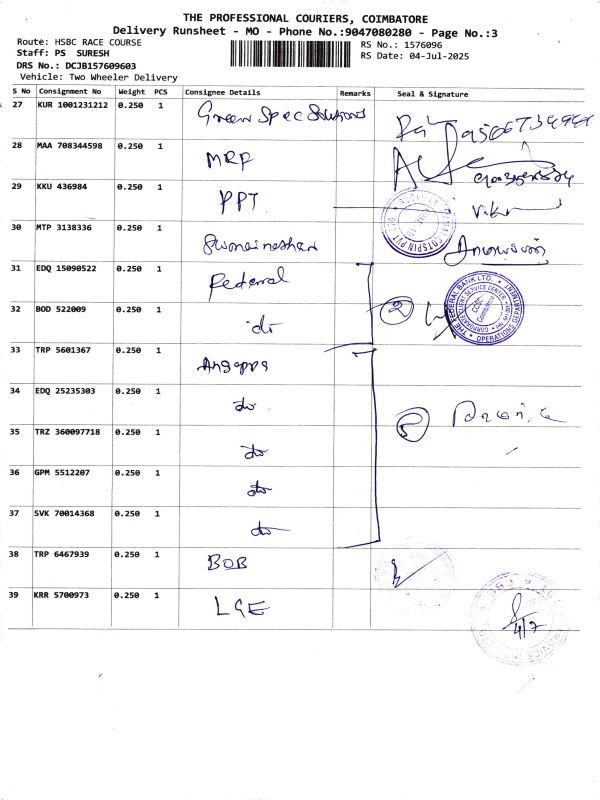 THE PROFESSIONAL COURIERS, COIMBATORE
Delivery Runsheet - MO - Phone No.:9047080280 - Page No.:3
Route: HSBC RACE COURSE
RS No.: 1576096
Staff: PS SURESH
RS Date: 04-Jul-2025
DRS No.: DCJB157609603
Vehicle: Two Wheeler Delivery
S No Consignment No Weight PCS Consignee Details Remarks Seal & Signature
27 KUR 1001231212 0.250 1 Green Spec Solutions
28 MAA 708344598 0.250 1 MRF
29 KKU 436984 0.250 1 PPT
30 MTP 3138336 0.250 1
31 EDQ 15090522 0.250 1 Federal
32 BOD 522009 0.250 1 do 2
THE FEDERAL BANK LTD.
OPERATIONS DEPARTMENT
33 TRP 5601367 0.250 1 Angappa
34 EDQ 25235303 0.250 1 do 5
35 TRZ 360097718 0.250 1 do
36 GPM 5512207 0.250 1 do
37 SVK 70014368 0.250 1 do
38 TRP 6467939 0.250 1 BOB
39 KRR 5700973 0.250 1 LGE
4/7